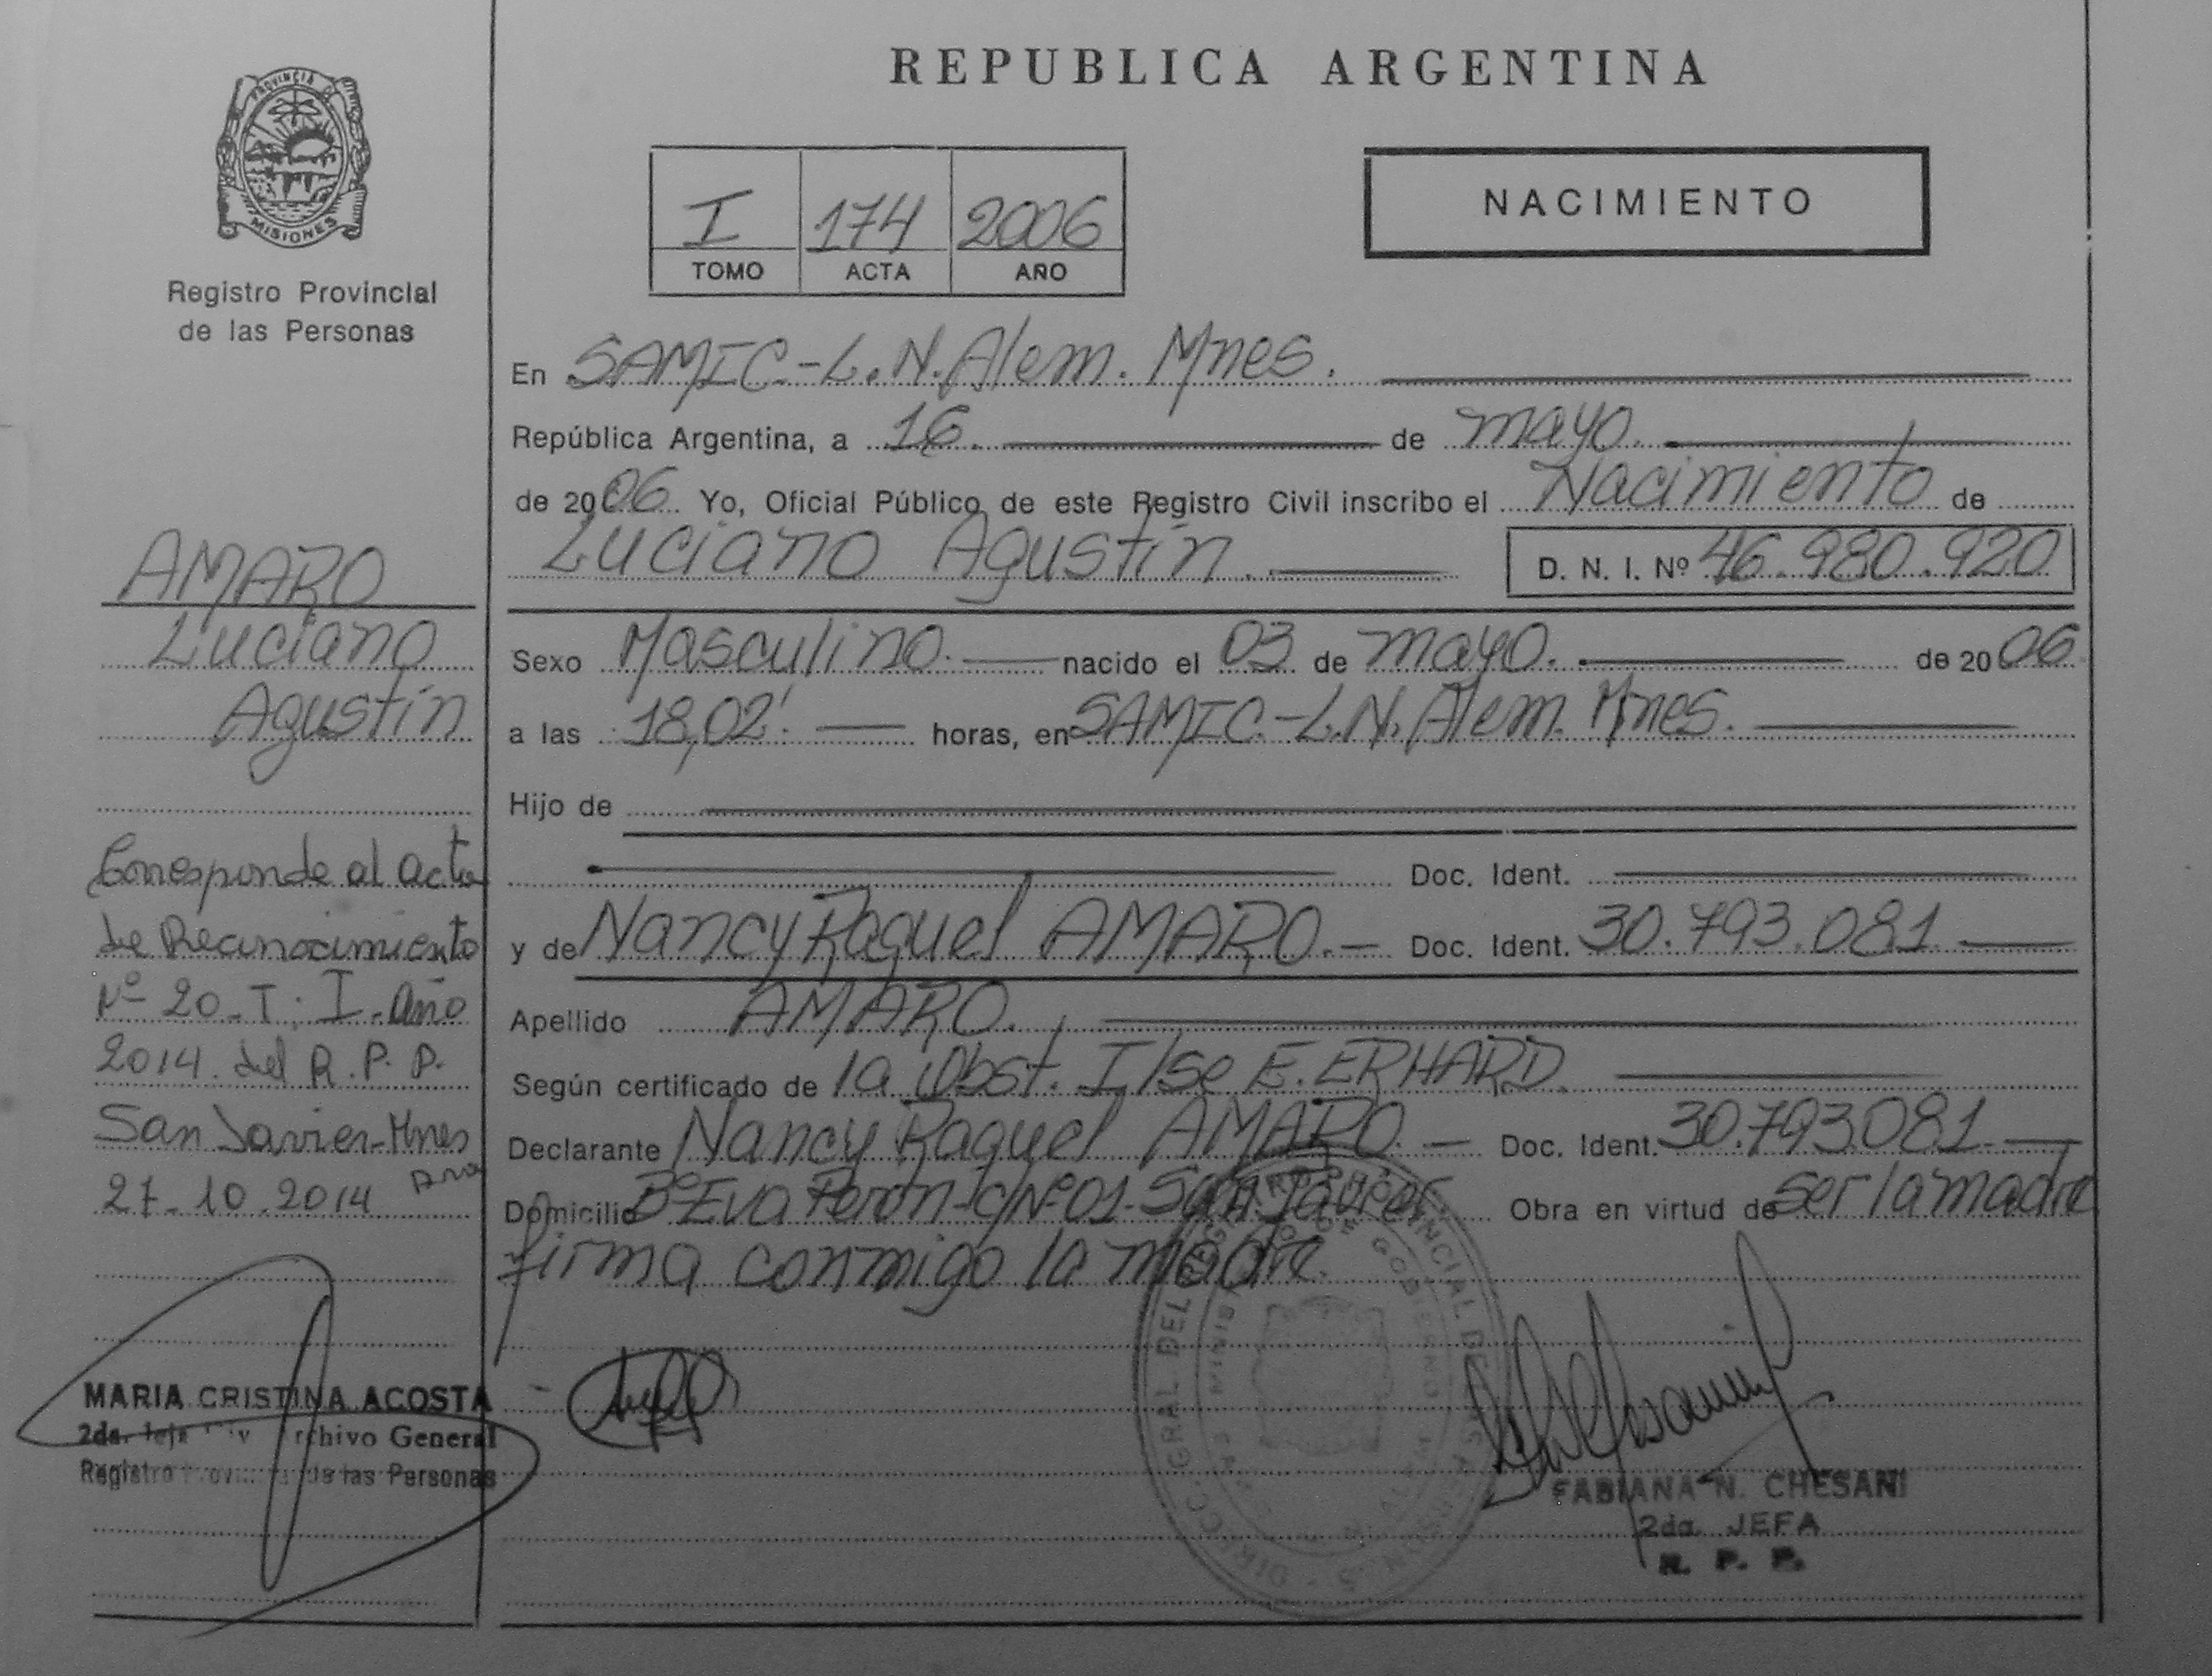 REPUBLICA ARGENTINA
PROVINCIA DE
MISIONES
Registro Provincial
de las Personas
I 174 2006
TOMO ACTA AÑO
NACIMIENTO
En SAMIC.-L.N.Alem. Mnes.
República Argentina, a 16. de mayo.
de 2006. Yo, Oficial Público de este Registro Civil inscribo el Nacimiento de
Luciano Agustín. D. N. I. Nº 46.980.920
Sexo Masculino. nacido el 03 de mayo. de 2006
a las 18,02'. horas, en SAMIC.-L.N.Alem. Mnes.
Hijo de
Doc. Ident.
y de Nancy Raquel AMARO.- Doc. Ident. 30.793.081
Apellido AMARO.
Según certificado de la Obst. Ilse E. ERHARD.
Declarante Nancy Raquel AMARO.- Doc. Ident. 30.793.081
Domicilio Bº Eva Perón-C/Nº01-San Javier. Obra en virtud de ser la madre
firma conmigo la madre.
AMARO
Luciano
Agustín
Corresponde al acta
de Reconocimiento
Nº 20-T: I-Año
2014 del R.P.P.
San Javier-Mnes
27-10.2014
MARIA CRISTINA ACOSTA
2da. Jefa Archivo General
Registro de las Personas
FABIANA N. CHESANI
2da. JEFA
R. P. P.